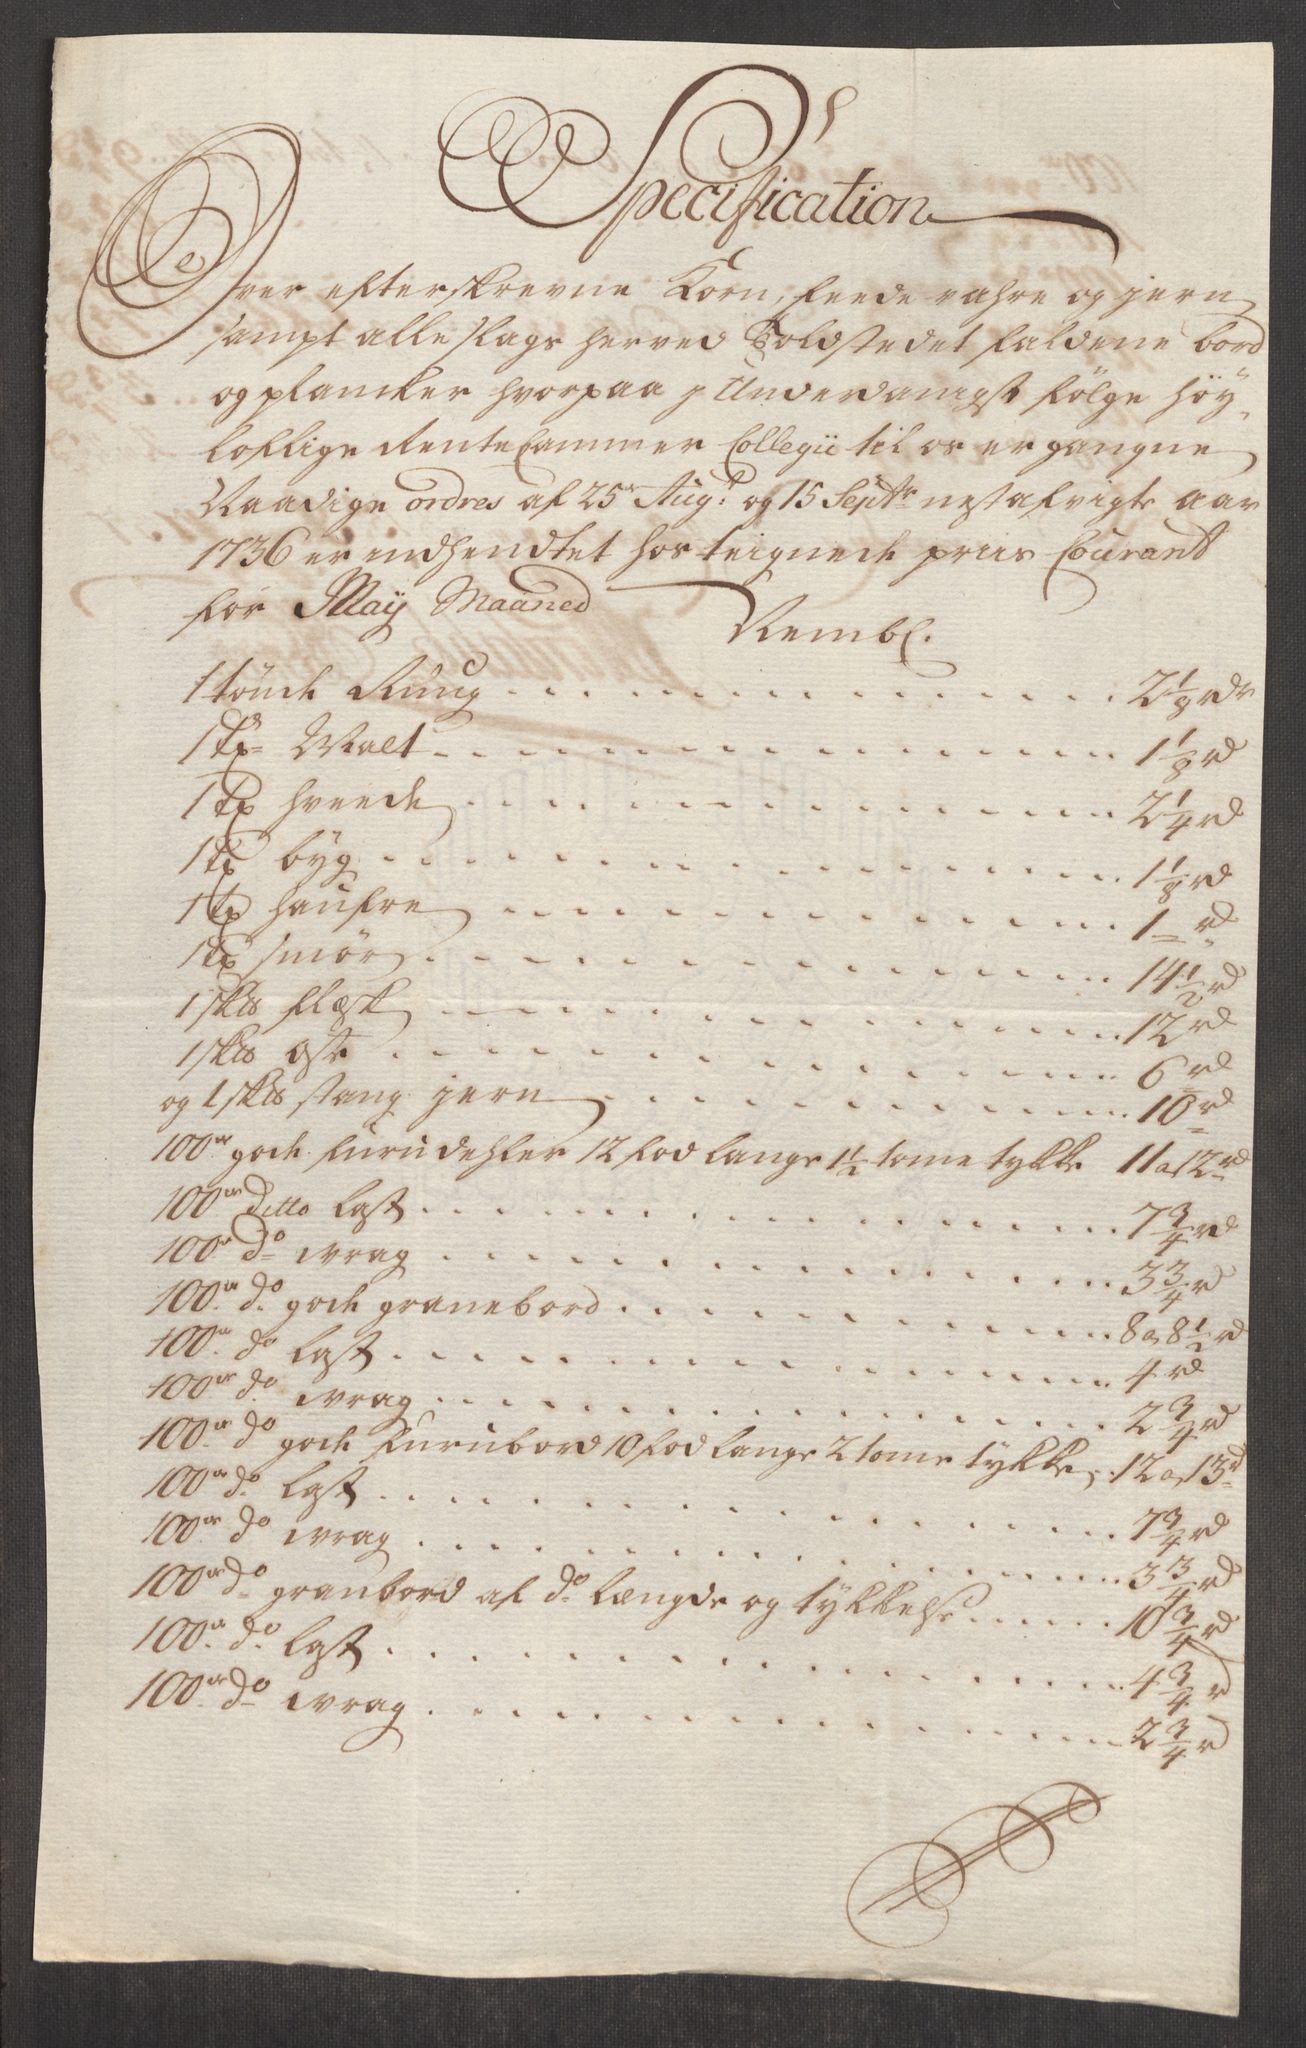 Specification
Over efterskrevne Korn, feede vahre og jern
sampt alle slags herved Toldstedet faldene bord
og plancker hvorpaa j Underdanigst følge höy
loflige Rente Cammer Collegii til os ergangne
Naadige ordres af 25de Augt: og 15 Septbr nestafvigte aar
1736 er indhendtet hosteignede priis Courant
for Maÿ Maaned
Nembl.
1 tönde Rüug . . . . 2 1/8 rdr
1 td Malt . . . . 1 1/8 rd
1 td hveede . . . . 2 1/4 rd
1 td bÿg . . . . 1 1/8 rd
1 td haufre . . . . 1 = rd
1 td smör . . . . 14 1/2 rd
1 sk℔ flesk . . . . 12 rd
1 sk℔ ost . . . . 6 rd
og 1 sk℔ stang jern . . . . 10 rd
100de gode furudehler 12 fod lange 1 1/2 tome tykke 11 a 12 rd
100de Ditto last . . . . 7 3/4 rd
100de do vrag . . . . 3 3/4 rd
100de do gode granebord . . . . 8 a 8 1/2 rd
100de do last . . . . 4 rd
100de do vrag . . . . 2 3/4 rd
100de do gode furubord 10 fod lange 2 tome tykke . 12 a 13 rd
100de do last . . . . 7 3/4 rd
100de do vrag . . . . 3 3/4 rd
100de do granbord af do længde og tykkelse . . . . 10 3/4 rd
100de do last . . . . 4 3/4 rd
100de do vrag . . . . 2 3/4 rd